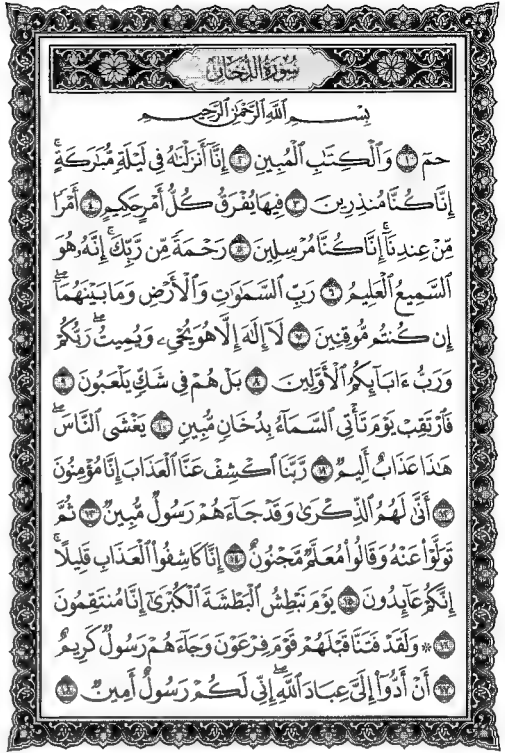 سُورَةُ الدُّخَانِ
بِسْمِ اللَّهِ الرَّحْمَٰنِ الرَّحِيمِ
حمٓ ١ وَالْكِتَابِ الْمُبِينِ ٢ إِنَّا أَنزَلْنَاهُ فِي لَيْلَةٍ مُّبَارَكَةٍ ۚ
إِنَّا كُنَّا مُنذِرِينَ ٣ فِيهَا يُفْرَقُ كُلُّ أَمْرٍ حَكِيمٍ ٤ أَمْرًا
مِّنْ عِندِنَا ۚ إِنَّا كُنَّا مُرْسِلِينَ ٥ رَحْمَةً مِّن رَّبِّكَ ۚ إِنَّهُ هُوَ
السَّمِيعُ الْعَلِيمُ ٦ رَبِّ السَّمَاوَاتِ وَالْأَرْضِ وَمَا بَيْنَهُمَا ۖ
إِن كُنتُم مُّوقِنِينَ ٧ لَا إِلَٰهَ إِلَّا هُوَ يُحْيِي وَيُمِيتُ ۖ رَبُّكُمْ
وَرَبُّ ءَابَآئِكُمُ الْأَوَّلِينَ ٨ بَلْ هُمْ فِي شَكٍّ يَلْعَبُونَ ٩
فَارْتَقِبْ يَوْمَ تَأْتِي السَّمَاءُ بِدُخَانٍ مُّبِينٍ ١٠ يَغْشَى النَّاسَ ۖ
هَٰذَا عَذَابٌ أَلِيمٌ ١١ رَّبَّنَا اكْشِفْ عَنَّا الْعَذَابَ إِنَّا مُؤْمِنُونَ
١٢ أَنَّىٰ لَهُمُ الذِّكْرَىٰ وَقَدْ جَاءَهُمْ رَسُولٌ مُّبِينٌ ١٣ ثُمَّ
تَوَلَّوْا عَنْهُ وَقَالُوا مُعَلَّمٌ مَّجْنُونٌ ١٤ إِنَّا كَاشِفُوا الْعَذَابِ قَلِيلًا ۚ
إِنَّكُمْ عَائِدُونَ ١٥ يَوْمَ نَبْطِشُ الْبَطْشَةَ الْكُبْرَىٰ إِنَّا مُنتَقِمُونَ
١٦ ۞ وَلَقَدْ فَتَنَّا قَبْلَهُمْ قَوْمَ فِرْعَوْنَ وَجَاءَهُمْ رَسُولٌ كَرِيمٌ
١٧ أَنْ أَدُّوا إِلَيَّ عِبَادَ اللَّهِ ۖ إِنِّي لَكُمْ رَسُولٌ أَمِينٌ ١٨